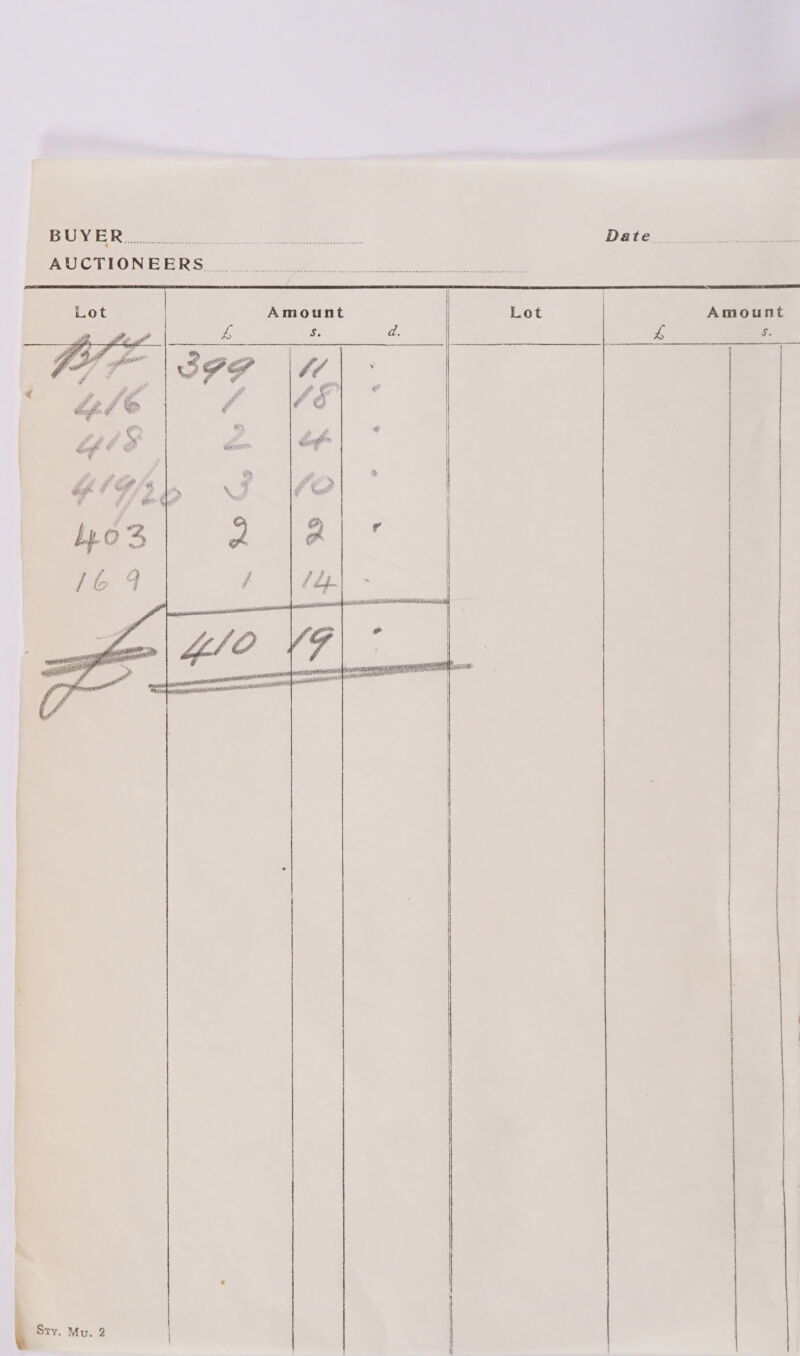 BUYER
Date
AUCTIONEERS
Lot Amount Lot Amount
£ s. d. £ s.
B/F 399 11 -
416 1 18 -
418 2 4 -
419/20 3 10 -
403 2 2 -
169 1 14 -
£ 410 19 -
STY. MU. 2